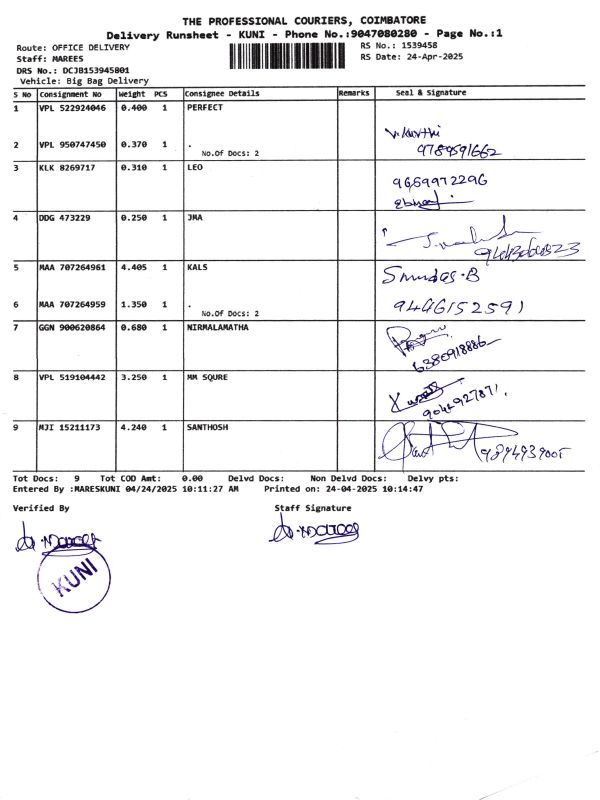 THE PROFESSIONAL COURIERS, COIMBATORE
Delivery Runsheet - KUNI - Phone No.:9047080280 - Page No.:1
Route: OFFICE DELIVERY
RS No.: 1539458
Staff: MAREES
RS Date: 24-Apr-2025
DRS No.: DCJB153945801
Vehicle: Big Bag Delivery
S No Consignment No Weight PCS Consignee Details Remarks Seal & Signature
1 VPL 522924046 0.400 1 PERFECT
2 VPL 950747450 0.370 1 .
No.Of Docs: 2
9789591662
3 KLK 8269717 0.310 1 LEO
9659972296
4 DDG 473229 0.250 1 JMA
5 MAA 707264961 4.405 1 KALS
6 MAA 707264959 1.350 1 . 9446152591
No.Of Docs: 2
7 GGN 900620864 0.680 1 NIRMALAMATHA
6380918886
8 VPL 519104442 3.250 1 MM SQURE
9 MJI 15211173 4.240 1 SANTHOSH
Tot Docs: 9 Tot COD Amt: 0.00 Delvd Docs: Non Delvd Docs: Delvy pts:
Entered By :MARESKUNI 04/24/2025 10:11:27 AM Printed on: 24-04-2025 10:14:47
Verified By Staff Signature
KUNI